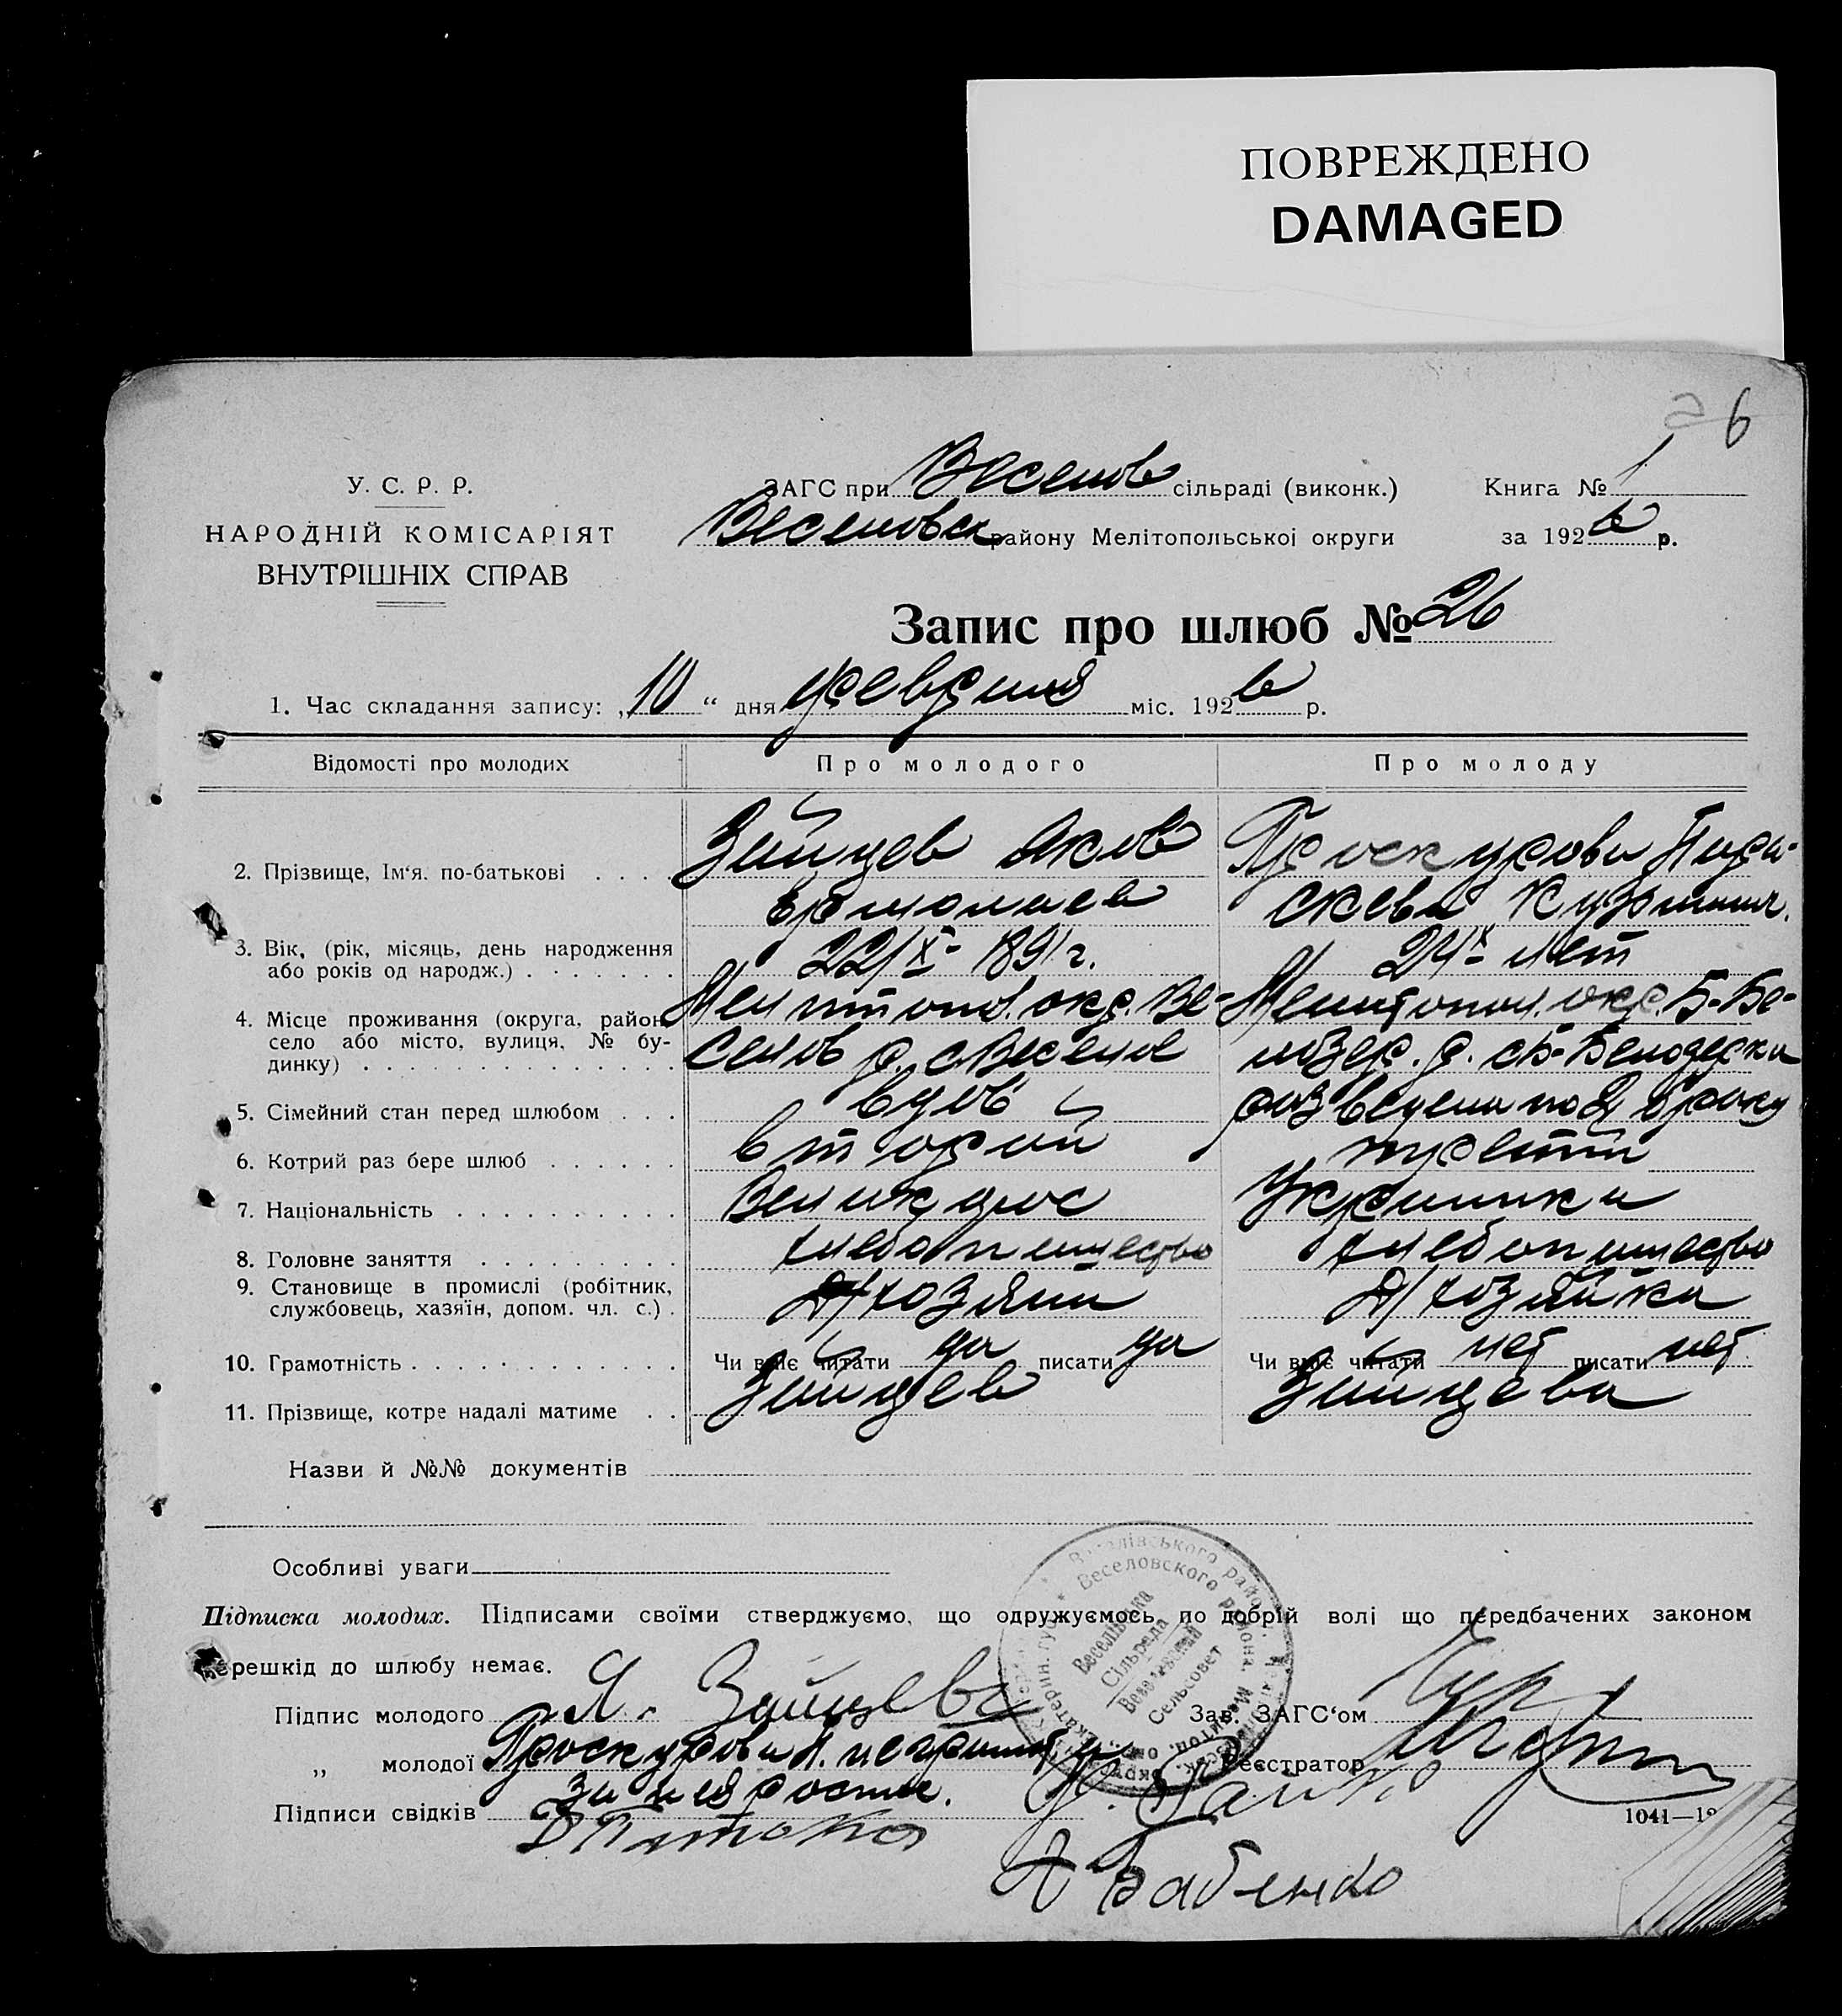 ПОВРЕЖДЕНО
DAMAGED
6
У. С. Р. Р.
НАРОДНІЙ КОМІСАРІЯТ
ВНУТРІШНІХ СПРАВ
ЗАГС при Веселов сільраді (виконк.)
Веселовск району Мелітопольськоі округи
Книга № 1
за 1926 р.
Запис про шлюб № 26
1. Час складання запису: „10“ дня февраля міс. 1926 р.
Відомості про молодих Про молодого Про молоду
2. Прізвище, Ім'я. по-батькові
Зайцев Яков
Ермолаев
Проскурова Пара-
скева Кузминич.
3. Вік, (рік, місяць, день народження
або років од народж.)
22/X- 1891 г.
24 лет
4. Місце проживання (округа, район,
село або місто, вулиця, № бу-
динку)
Мелитопол. окр. Ве-
селов р. с Веселое
Мелитопол. окр. Б-Бе-
лозер. р. с Б-Белозерка
5. Сімейний стан перед шлюбом вдов разведена по 2 браку
6. Котрий раз бере шлюб второй третий
7. Національність Великорос Украинка
8. Головне заняття хлебопашество хлебопашество
9. Становище в промислі (робітник,
службовець, хазяїн, допом. чл. с.)
Д/хозяин
Д/хозяйка
10. Грамотність Чи вміє читати да писати да Чи вміє читати нет писати нет
11. Прізвище, котре надалі матиме Зайцев Зайцева
Назви й №№ документів
Особливі уваги
Підписка молодих. Підписами своїми стверджуємо, що одружуємось по добрій волі що передбачених законом
перешкід до шлюбу немає.
Підпис молодого Я. Зайцев
„ молодої Проскурова П. неграмотна
за нея росп.
Підписи свідків
Бабенко
Зав. ЗАГС'ом
Реєстратор
1041—12
Веселівського району
Веселовского района. Мелитоп. окр. Екатерин. губ.
Веселівська
Сільрада
Веселовский
Сельсовет